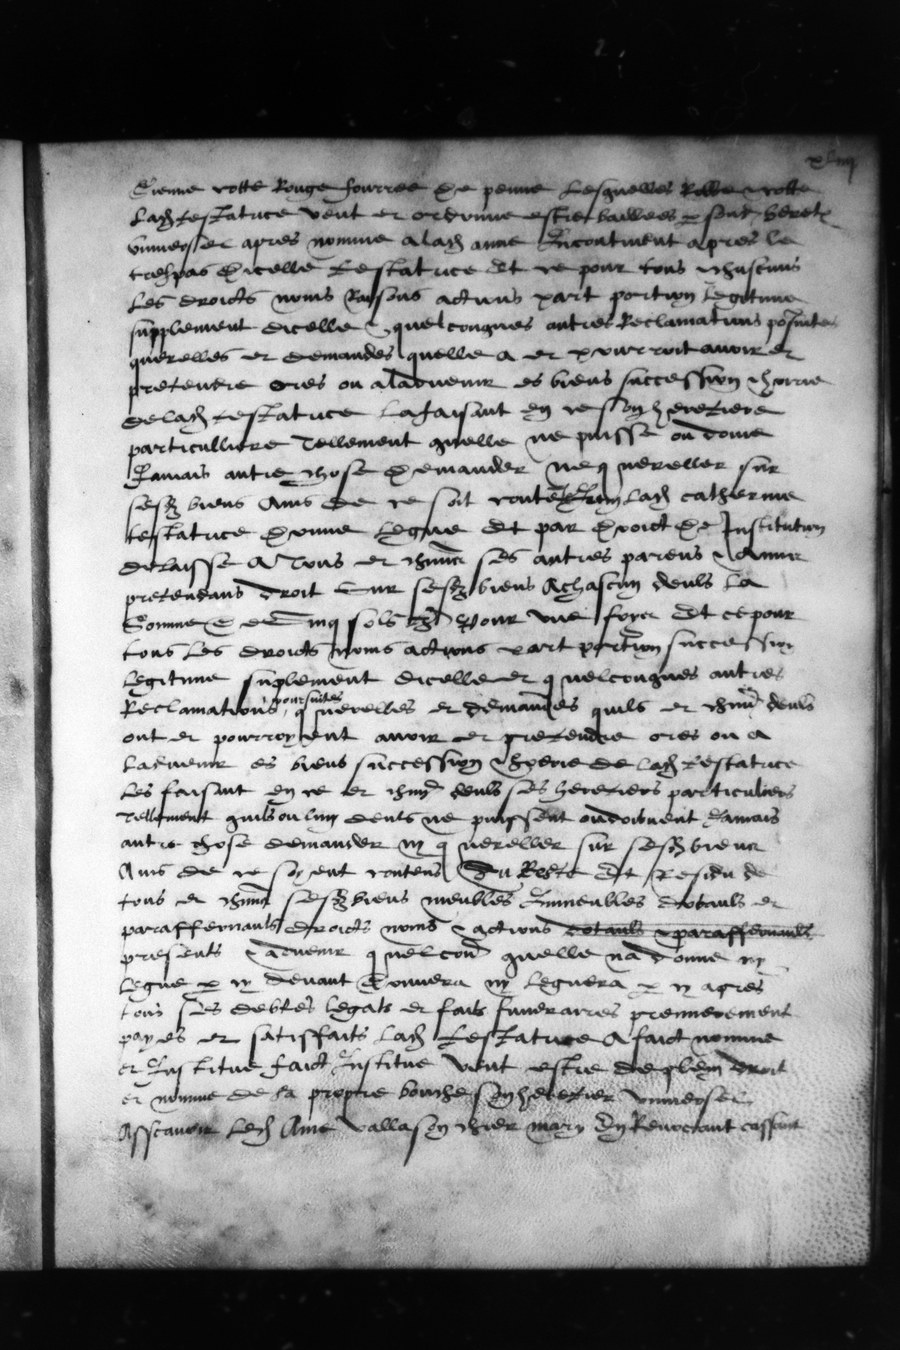 xliiij
Sienne cotte Rouge fourree de penne Lesquelles Robbe & cotte
Lad. testatrice veut et ordonne estre baillees p sond. heret.
universer apres nomme a lad. anne Incontinent apres le
trespas d'icelle testatrice Et ce pour tous chascuns
Les droicts noms Raysons actions part portion legitime
supplement dicelle & quelconques autres Reclamations poursuites
querelles et demandes quelle a et pourroit avoir et
pretendre ores ou aladvenir es biens succession & hoirie
de lad. testatrice La faisant en ce son heretiere
particulliere Tellement quelle ne puisse ou doive
Jamais autre chose demander ne quereller sur
sesd. biens Ains de ce soit contente Item Lad. catherine
testatrice donne Legue Et par droict de Institution
delaisse A Tous et chun ses autres parens & avoir
pretendans droit Sur sesd. biens A chascun deulx La
Somme de cinq sols ts Pour une foys Et ce pour
tous Les droicts noms actions part portion succession
Legitime suplement dicelle et quelconques autres
Reclamations poursuites querelles et demandes quils et chun deulx
ont et pourroyent avoir et pretendre ores ou a
Ladvenir es biens succession & hoirie de lad. testatrice
Les faisant en ce et chun deulx ses heretiers particuliers
Tellement quils ou lun deulx ne puissent ou doibvent Jamais
autre chose demander ny quereller sur sesd. biens
Ains de ce soyent contens Du Reste Et Residu de
tous et chuns sesd. biens meubles Immeubles dotaulx et
paraffernaulx droicts noms & actions dotaulx & paraffernaulx
presents & advenir quelconq quelle na donne ny
Legue p cy devant donnera ny Leguera p cy apres
tous ses debtes legats et faits funeraires premierement
payes et satisfaits Lad. testatrice A faict nomme
et Institue faict Institue Veut estre de plein droit
et nomme de sa propre bouche son heretier universer
Asscavoir Led. Ame Vallason chier mary En Revocant cassant